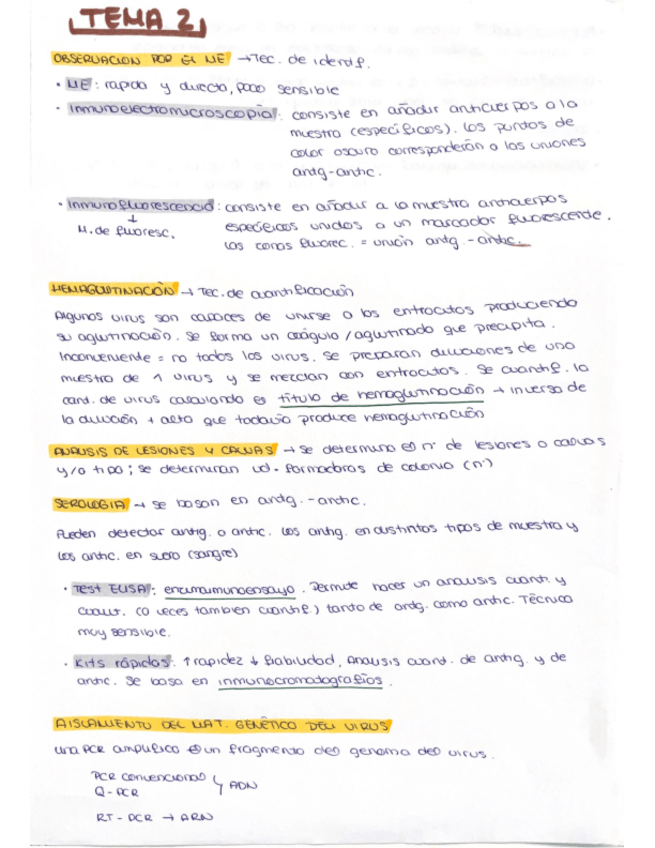 TEMA 2
OBSERVACION POR EL ME → Tec. de identif.
· ME: rapida y directa, poco sensible
· Inmunoelectromicroscopia: consiste en añadir anticuerpos a la
muestra (específicos). Los puntos de
color oscuro corresponderán a las uniones
antg-antic.
· Inmunofluorescencia: consiste en añadir a la muestra anticuerpos
↓
M. de fluoresc.
específicos unidos a un marcador fluorescente.
Las zonas fluorec. = unión antg.-antic.
HEMAGLUTINACIÓN → Tec. de cuantificación
Algunos virus son capaces de unirse a los eritrocitos produciendo
su aglutinación. Se forma un coágulo/aglutinado que precipita.
Inconveniente = no todos los virus. Se preparan diluciones de una
muestra de 1 virus y se mezclan con eritrocitos. Se cuantif. la
cant. de virus calculando el título de hemaglutinación → inverso de
la dilución + alta que todavía produce hemaglutinación
ANALISIS DE LESIONES Y CALVAS → se determina el nº de lesiones o calvas
y/o tipo; se determinan ud. formadoras de colonia (nº)
SEROLOGIA → se basan en antg.-antic.
Pueden detectar antig. o antic. Los antig. en distintos tipos de muestra y
los antic. en suero (sangre)
· Test ELISA: enzimaimunoensayo. Permite hacer un analisis cuant. y
cualit. (a veces tambien cuantif.) tanto de antg. como antic. Técnica
muy sensible.
· Kits rápidos: ↑ rapidez ↓ fiabilidad. Analisis cuant. de antig. y de
antic. Se basa en inmunocromatografías.
AISLAMIENTO DEL MAT. GENÉTICO DEL VIRUS
Una PCR amplifica un fragmento del genoma del virus.
PCR convencional
Q-PCR
ADN
RT-PCR → ARN